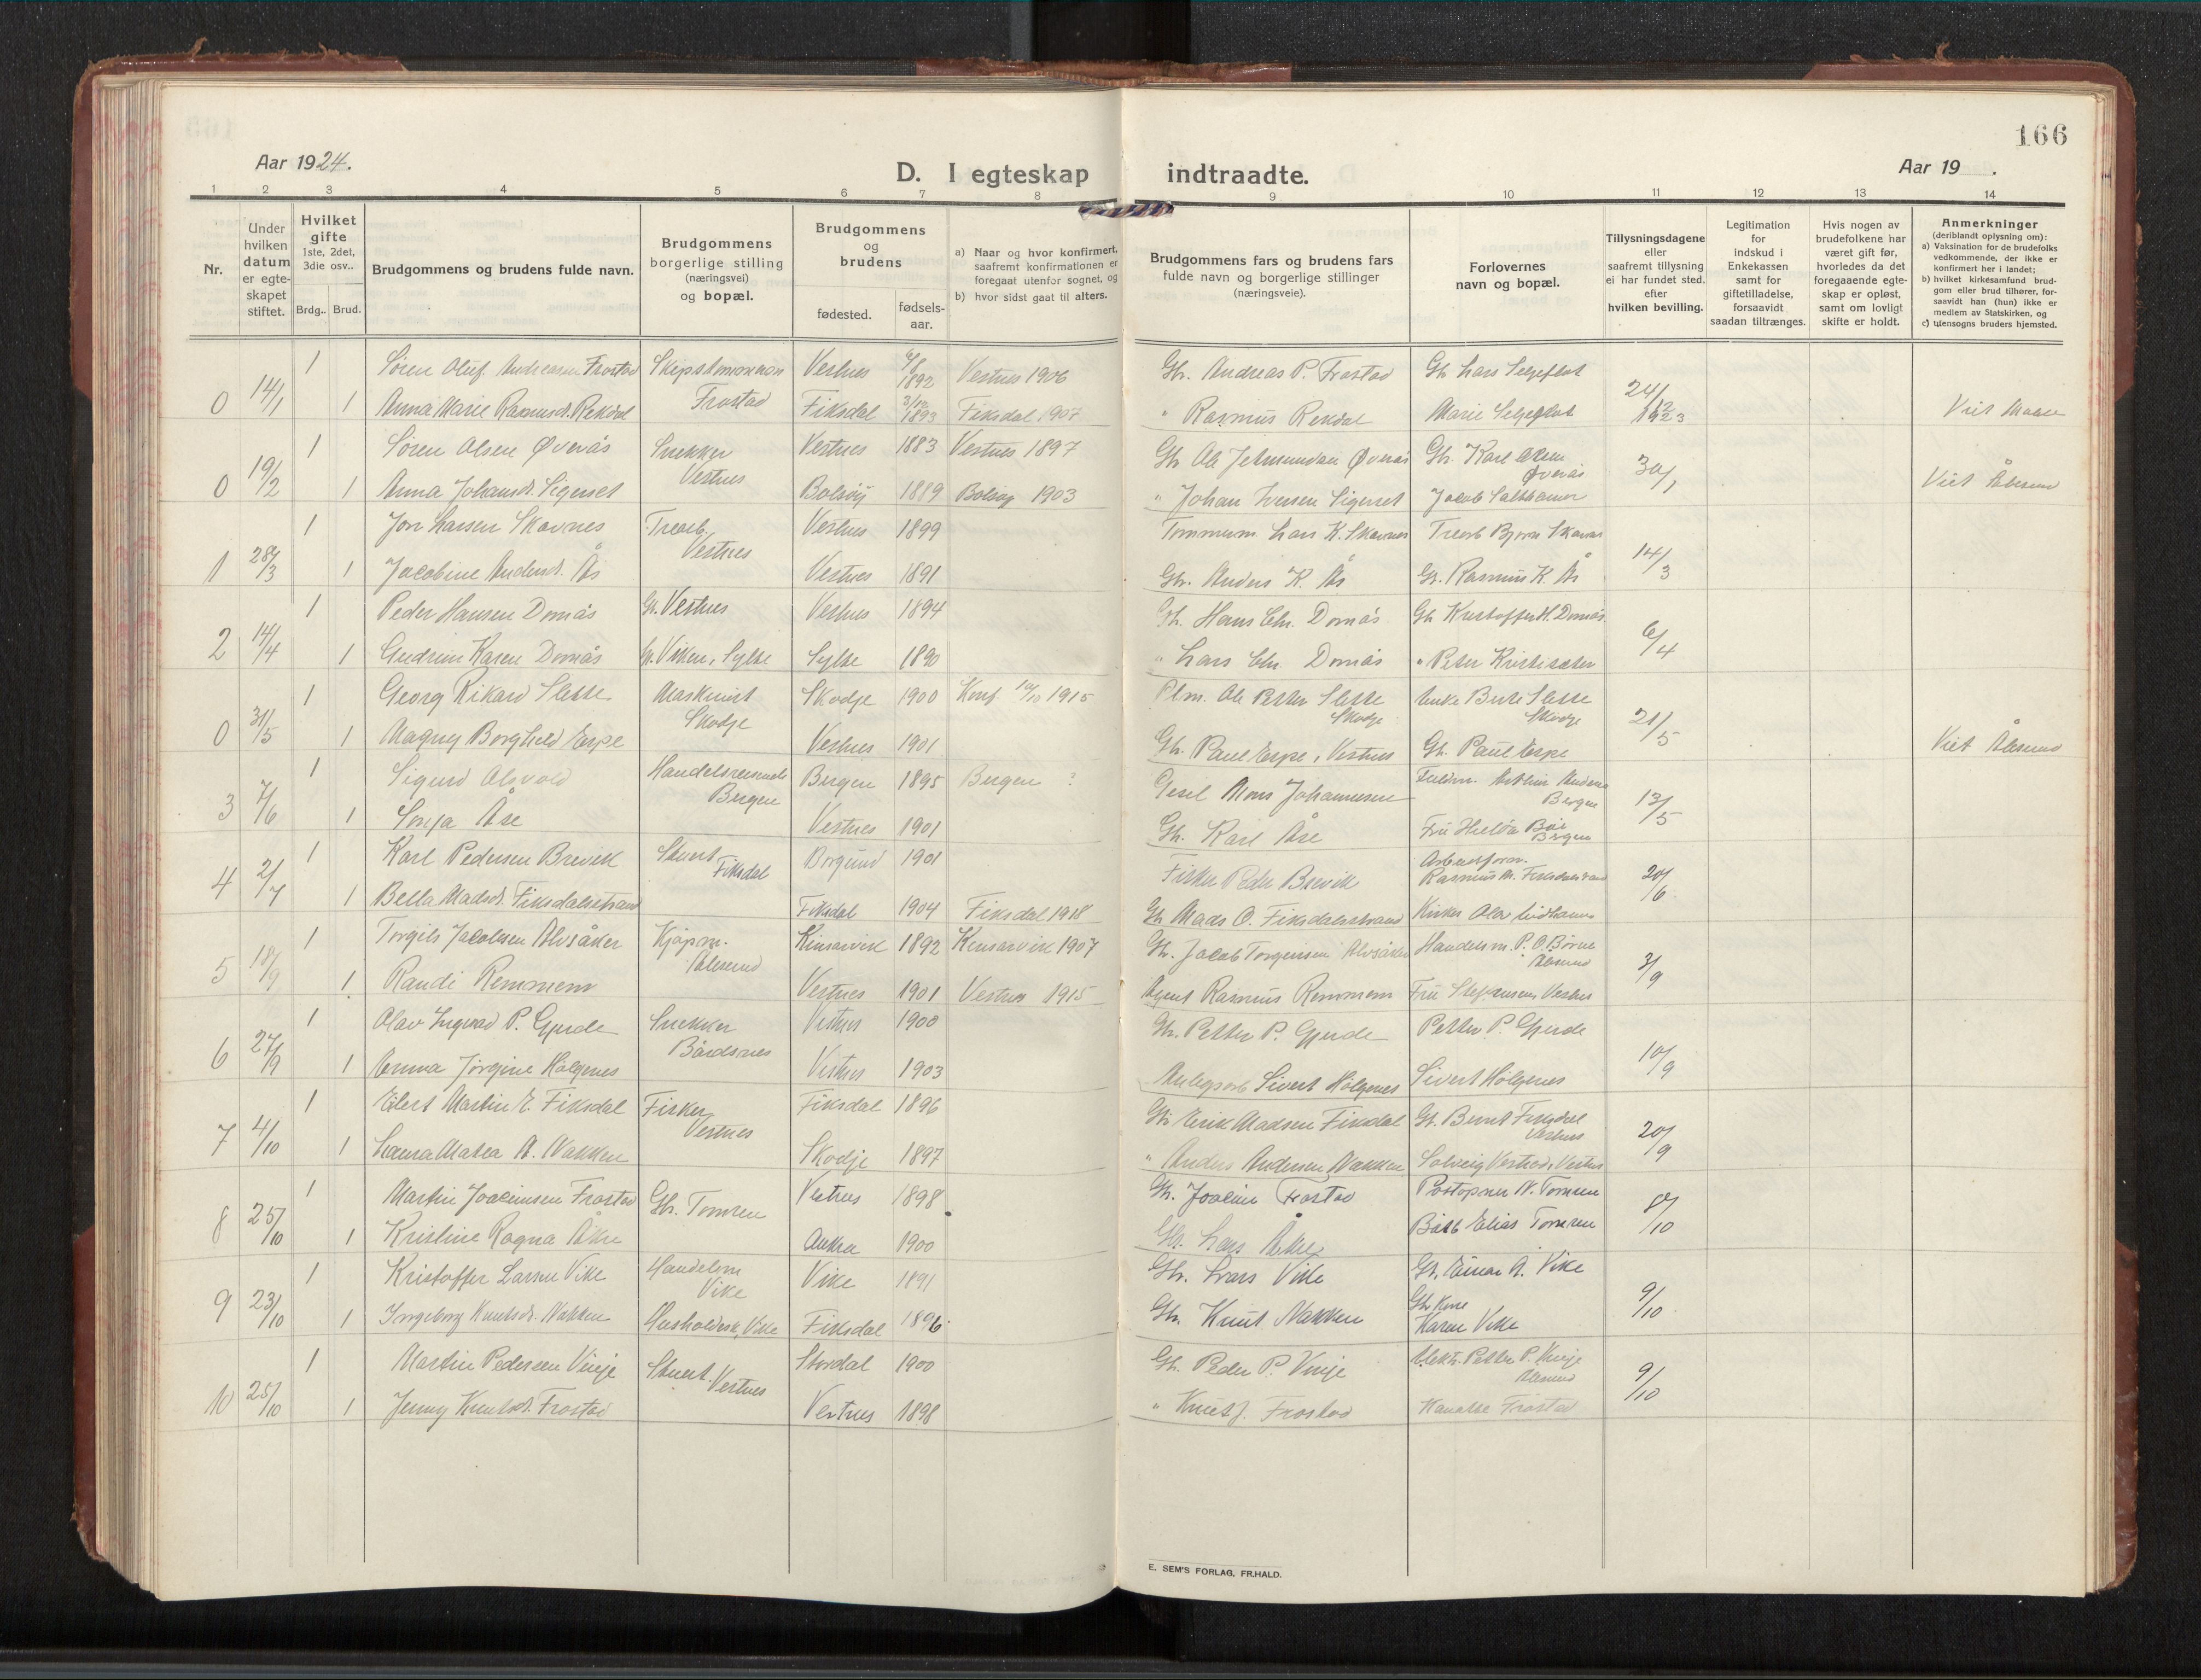 166
Aar 1924.
D. I egteskap indtraadte.
Aar 19 .
1 2 3 4 5 6 7 8 9 10 11 12 13 14
Nr.
Under hvilken datum er egteskapet stiftet.
Hvilket gifte
1ste, 2det, 3die osv..
Brdg.. Brud.
Brudgommens og brudens fulde navn.
Brudgommens borgerlige stilling (næringsvei) og bopæl.
Brudgommens og brudens
fødested.
fødsels-aar.
a) Naar og hvor konfirmert, saafremt konfirmationen er foregaat utenfor sognet, og
b) hvor sidst gaat til alters.
Brudgommens fars og brudens fars fulde navn og borgerlige stillinger (næringsveie).
Forlovernes navn og bopæl.
Tillysningsdagene eller saafremt tillysning ei har fundet sted. efter hvilken bevilling.
Legitimation for indskud i Enkekassen samt for giftetilladelse, forsaavidt saadan tiltrænges.
Hvis nogen av brudefolkene har været gift før, hvorledes da det foregaaende egteskap er opløst, samt om lovligt skifte er holdt.
Anmerkninger
(deriblandt oplysning om):
a) Vaksination for de brudefolks vedkommende, der ikke er konfirmert her i landet;
b) hvilket kirkesamfund brudgom eller brud tilhører, forsaavidt han (hun) ikke er medlem av Statskirken, og
c) utensogns bruders hjemsted.
1 Søren Oluf Andreassen Frostad Vestnes 1892 Vestnes 1906 Gbr. Andreas P. Frostad Gb Lars Seljeflot
0 14/1 1 Anna Marie Rasmusd. Rekdal Frostad Fiksdal 3/12 1893 Fiksdal 1907 " Rasmus Rekdal Marie Seljeflot 24/12 1923
1 Søren Olsen Øverås Snekker Vestnes 1883 Vestnes 1897 Gb Ole Jetmundsen Øverås Gb. Karl Olsen Øverås
0 19/2 1 Anna Johansd. Sigerset Vestnes Bolsøy 1889 Bolsøy 1903 " Johan Iversen Sigerset Jacob Salthamer 30/1 Viet Ålesund
1 Jon Larsen Skavnes Trearb. Vestnes Vestnes 1899 Tømmerm. Lars K. Skavnes Trearb Bjørn Skavnes
1 28/3 1 Jacobine Andersd. Ås Vestnes 1891 Gbr. Anders K. Ås Gb. Rasmus K. Ås 14/3
1 Peder Hansen Dornås Gb. Vestnes Vestnes 1894 Gb. Hans Chr. Dornås Gb Kristoffer H. Dornås
2 14/4 1 Gudrun Karen Dornås Viken, Sylte Sylte 1890 " Lars Chr. Dornås " Peter Kristisæter 6/4
1 Georg Rikard Slette Maskinist Skodje Skodje 1900 Konf. 10/10 1915 Ole Petter Slette Skodje Enke Slette Skodje
0 31/5 1 Magny Borghild Espe Vestnes 1901 Gb. Paul Espe, Vestnes Gb. Paul Espe 21/5 Viet Ålesund
1 Sigurd Alsvold Handelsreisende Bergen Bergen 1895 Bergen ? Mons Johannesen Bergen
3 7/6 1 Sonja Åse Vestnes 1901 Gb. Karl Åse Fru Bergen 13/5
1 Karl Pedersen Brevik Stuert Fiksdal Borgund 1901 Fisker Peder Brevik Rasmus M. Fiksdalstrand
4 2/7 1 Bella Madsd. Fiksdalsstrand Fiksdal 1904 Fiksdal 1918 Gb Mads O. Fiksdalsstrand 20/6
1 Torgils Jacobsen Alvsåker Kjøpm. Ålesund Kinsarvik 1892 Kinsarvik 1907 Gb. Jacob Torgeirsen Alvsåker Handelsm. P. O. Børve Ålesund
5 18/9 1 Randi Remmem Vestnes 1901 Vestnes 1915 Agent Rasmus Remmem Fru Stefansen, Vestnes 3/9
1 Olav Ingvard P. Gjerde Snekker Bårdsnes Vestnes 1900 Gb. Petter P. Gjerde Petter P. Gjerde
6 27/9 1 Anna Jørgine Hølgenes Vestnes 1903 Anlegsarb Sivert Hølgenes Sivert Hølgenes 10/9
1 Eilert Martin E. Fiksdal Fisker Vestnes Fiksdal 1896 Gb. Erik Madsen Fiksdal Gb. Bernt Fiksdal Vestnes
7 4/10 1 Laura Matea A. Nakken Skodje 1897 " Anders Andersen Nakken Solveig Vestad, Vestnes 20/9
1 Martin Joacimsen Frostad Gb. Tomren Vestnes 1898 Gb. Joacim Frostad Postopner N. Tomren
8 25/10 1 Kristine Ragna Åkre Aukra 1900 Gb. Lars Åkre Elias Tomren 8/10
1 Kristoffer Larsen Vike Handelsm Vike Vike 1891 Gbr. Lars Vike Gb. Einar A. Vike
9 23/10 1 Ingeborg Knutsd. Nakken Vike Fiksdal 1896 Gb. Knut Nakken Gb Kone Karen Vike 9/10
1 Martin Pedersen Vinje Stuert. Vestnes Stordal 1900 Gb. Peder P. Vinje Petter P. Vinje Ålesund
10 25/10 1 Jenny Knutsd. Frostad Vestnes 1898 " Knut J. Frostad Frostad 9/10
E. SEM'S FORLAG, FR.HALD.